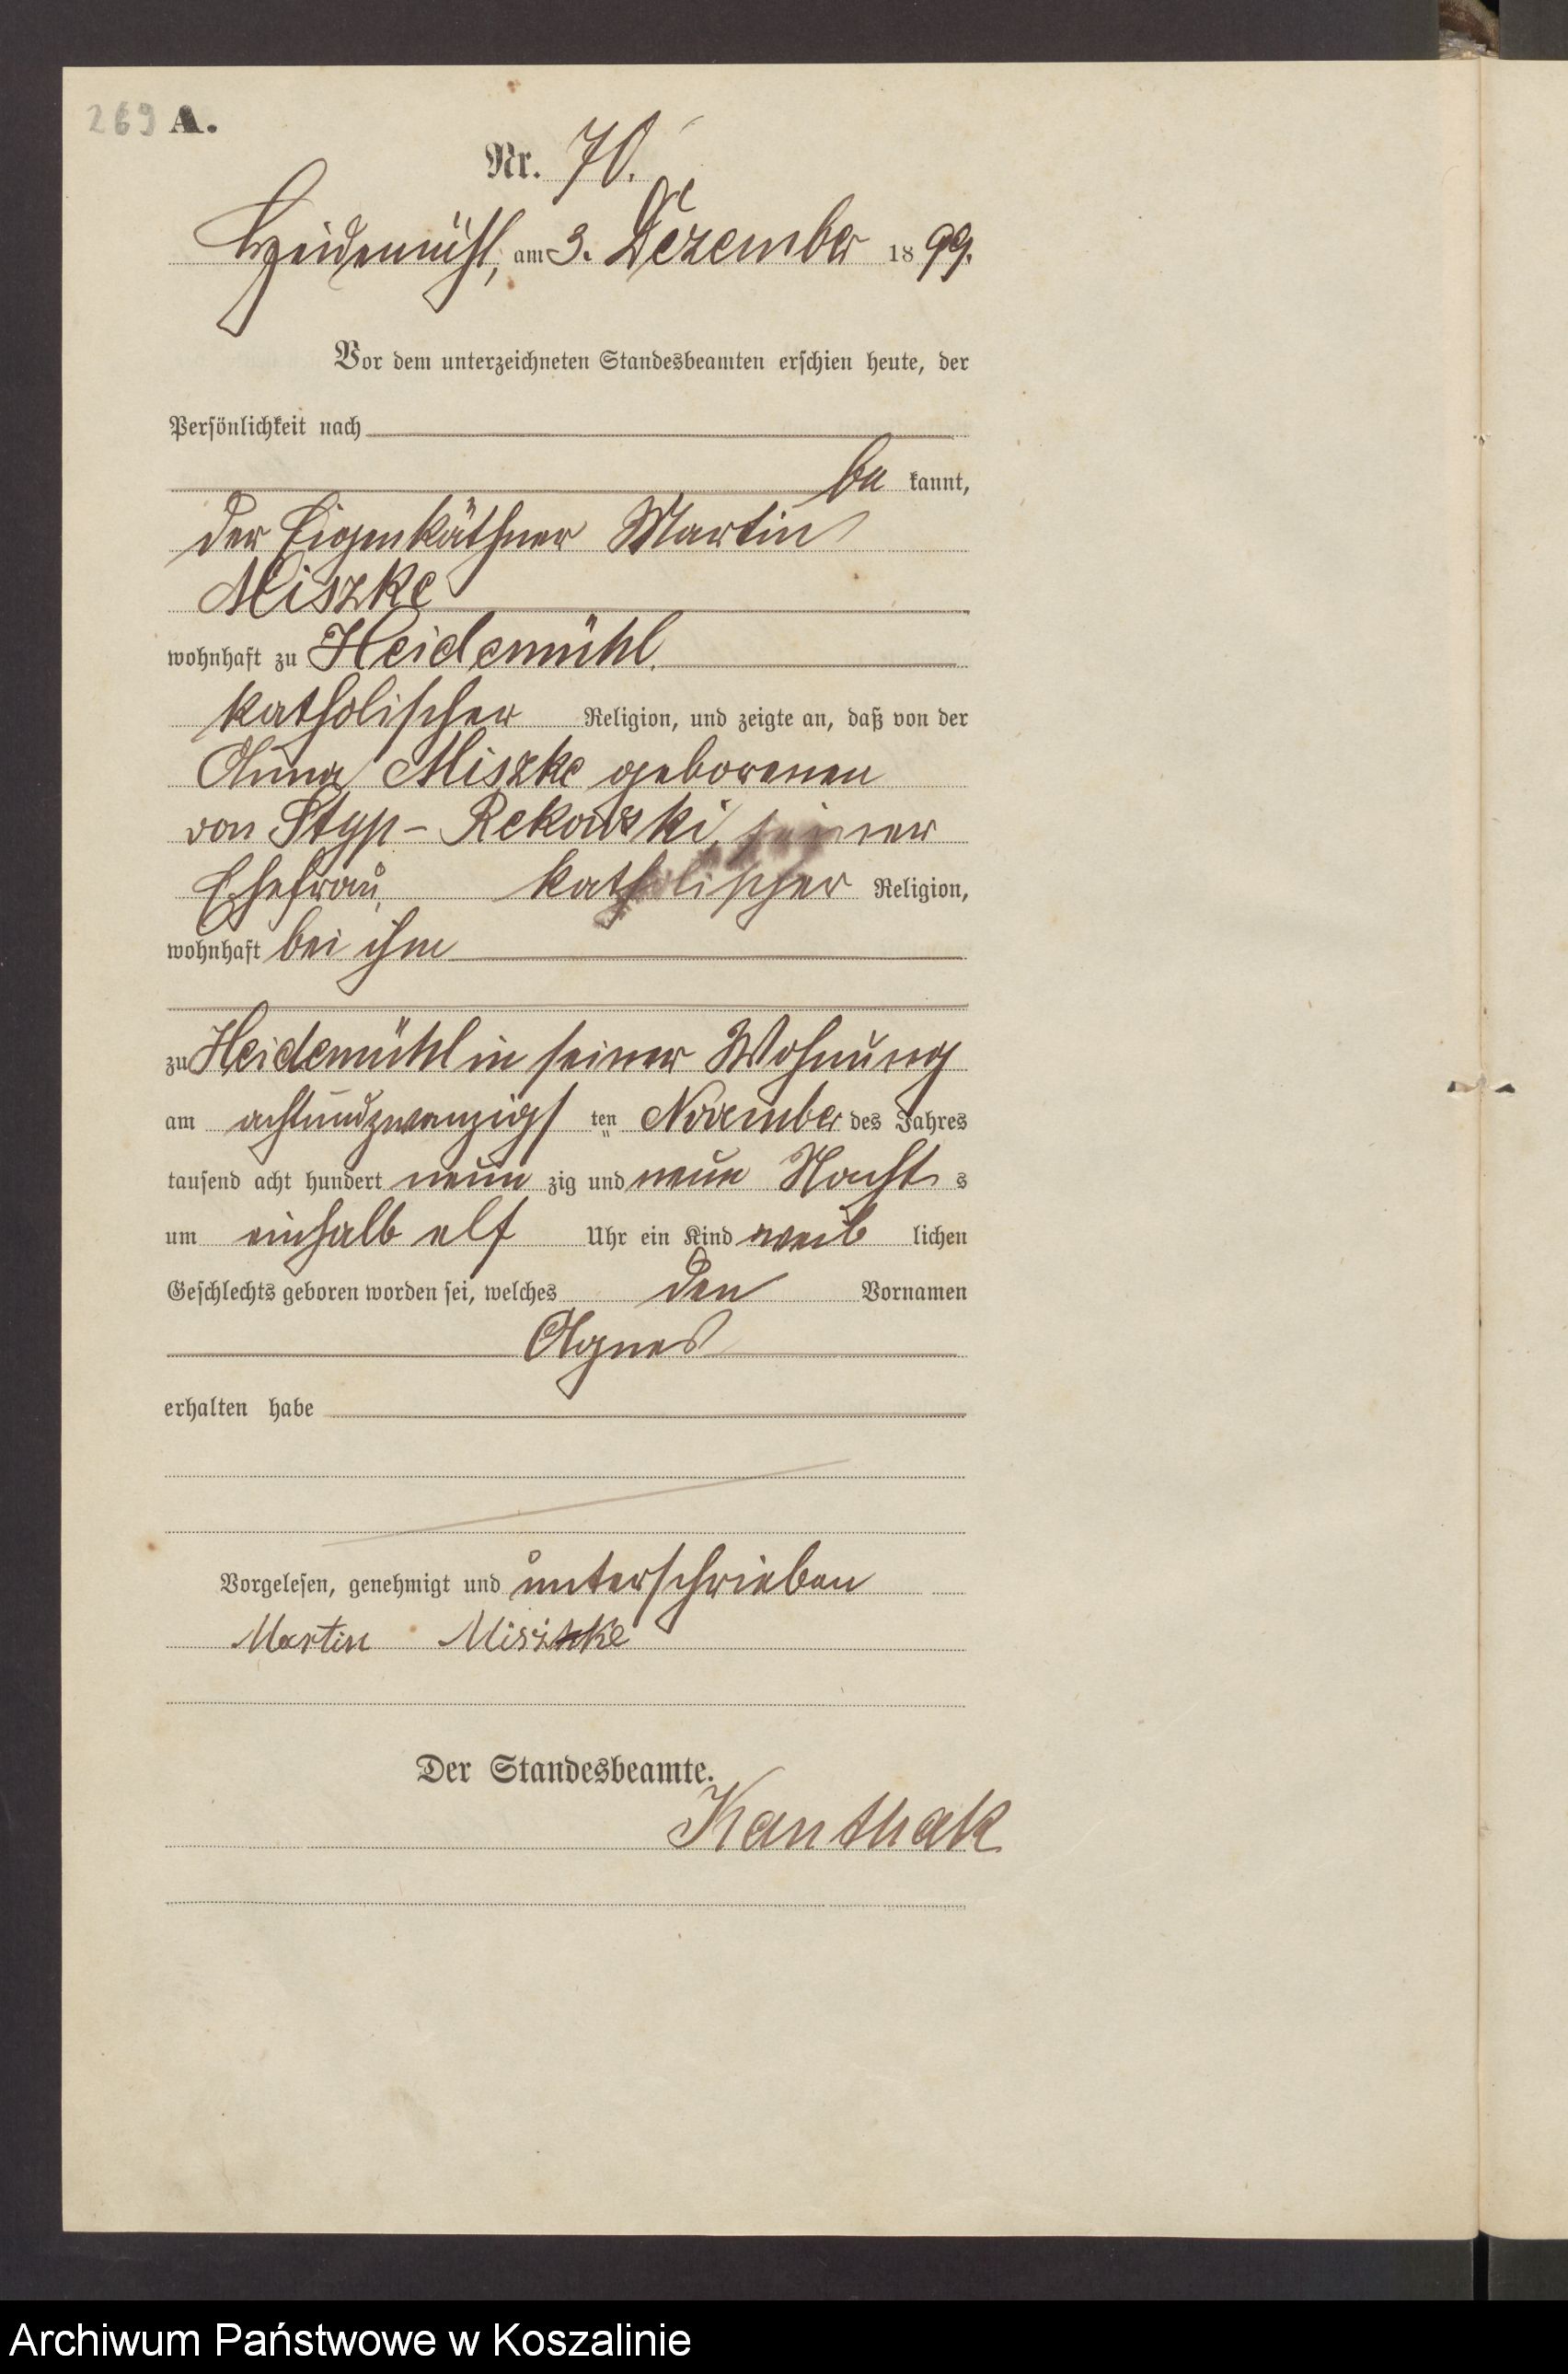 269 A.
Nr. 70.
Heidemühl, am 3. Dezember 1899.
Vor dem unterzeichneten Standesbeamten erschien heute, der
Persönlichkeit nach
be kannt,
der Eigenkäthner Martin
Miszke
wohnhaft zu Heidemühl.
katholischer Religion, und zeigte an, daß von der
Anna Miszke geborenen
von Styp- Rekowski, seiner
Ehefrau, katholischer Religion,
wohnhaft bei ihm
zu Heidemühl in seiner Wohnung
am achtundzwanzigsten November des Jahres
tausend acht hundert neun zig und neun Nacht s
um einhalb elf Uhr ein Kind weib lichen
Geschlechts geboren worden sei, welches den Vornamen
Agnes
erhalten habe
Vorgelesen, genehmigt und unterschrieben
Martin Miszke
Der Standesbeamte.
Kanthak
Archiwum Państwowe w Koszalinie